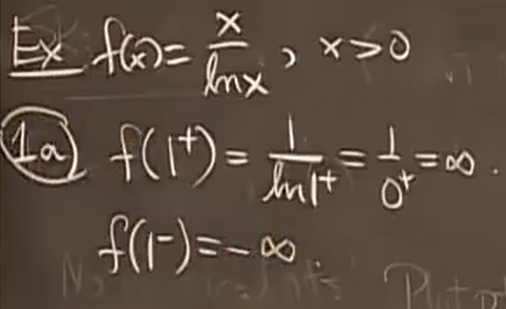 Ex f(x) = x/ln x, x > 0
1a f(1⁺) = 1/ln 1⁺ = 1/0⁺ = ∞.
f(1⁻) = -∞.